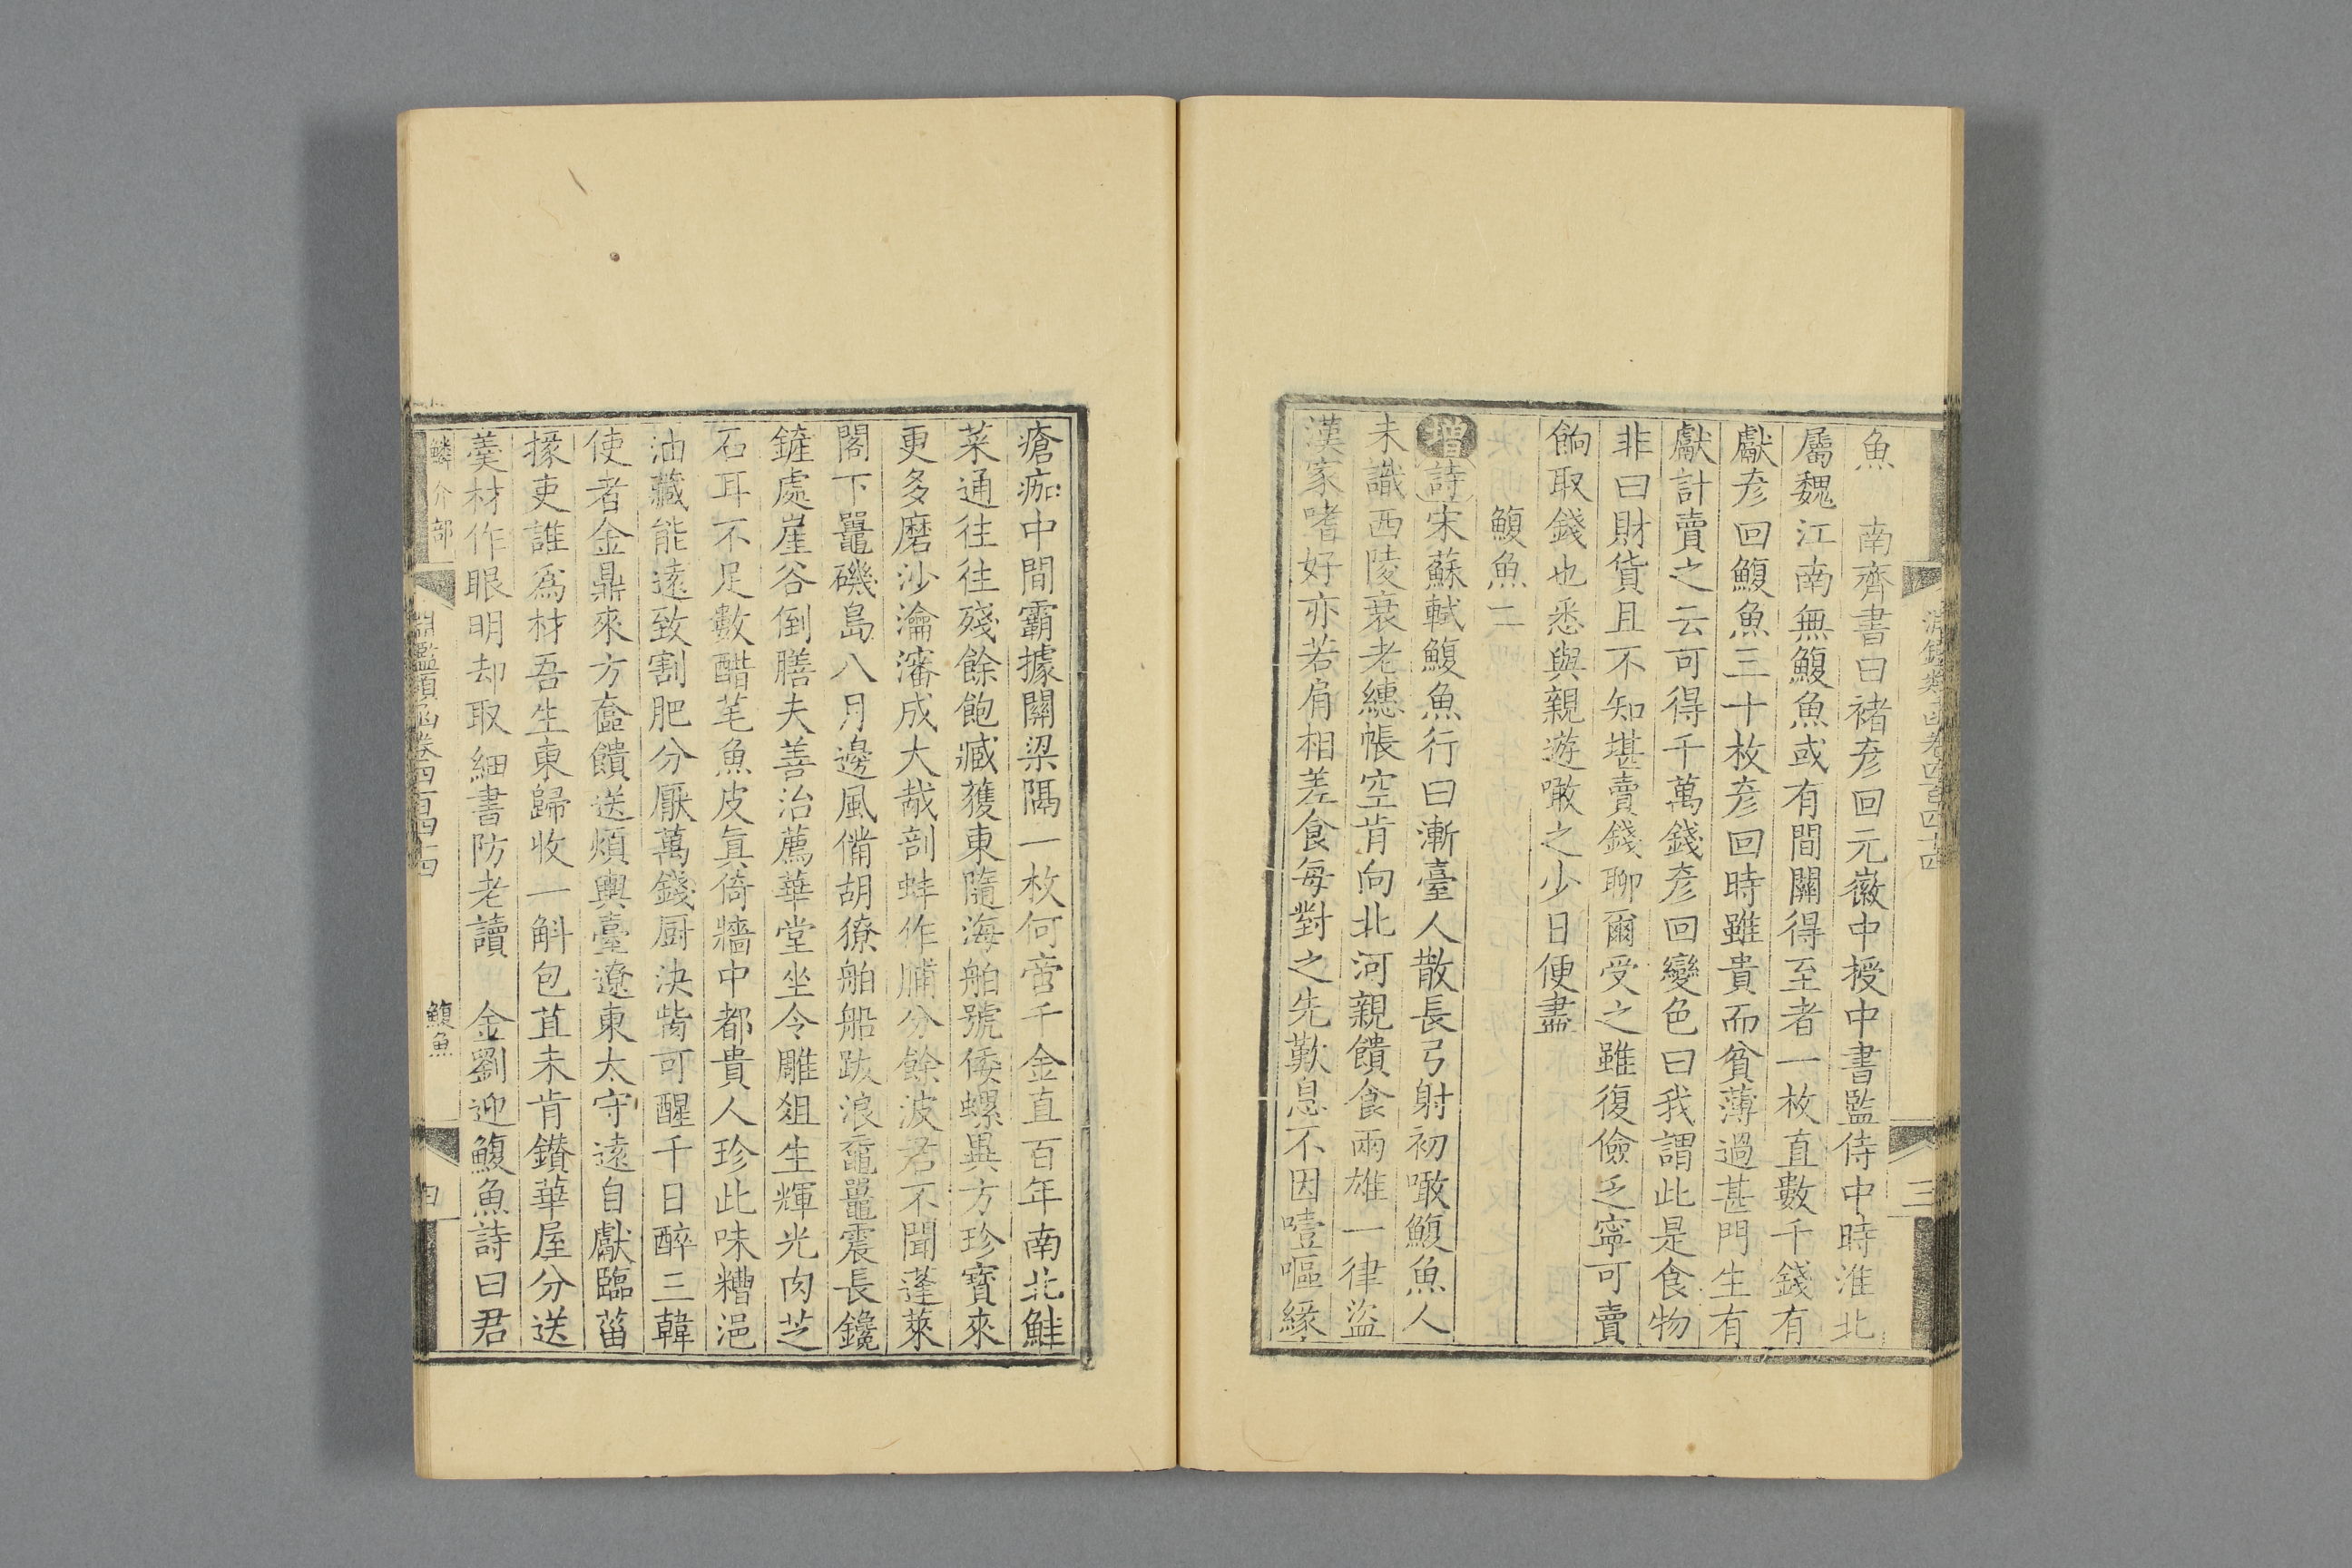 淵鑑類函卷四百四十四
三
魚　南齊書曰褚彥回元徽中授中書監侍中時淮北
屬魏江南無鰒魚或有間關得至者一枚直數千錢有
獻彥回鰒魚三十枚彥回時雖貴而貧薄過甚門生有
獻計賣之云可得千萬錢彥回變色曰我謂此是食物
非曰財貨且不知堪賣錢聊爾受之雖復儉乏寧可賣
餉取錢也悉與親遊噉之少日便盡
鰒魚二
增詩宋蘇軾鰒魚行曰漸臺人散長弓射初噉鰒魚人
未識西陵衰老繐帳空肯向北河親饋食兩雄一律盜
漢家嗜好亦若肩相差食每對之先歎息不因噎嘔緣
瘡痂中間霸據關梁隔一枚何啻千金直百年南北鮭
菜通往往殘餘飽臧獲東隨海舶號倭螺異方珍寶來
更多磨沙瀹瀋成大胾剖蚌作脯分餘波君不聞蓬萊
閣下鼉磯島八月邊風備胡獠舶船跋浪黿鼉震長鑱
鏟處崖谷倒膳夫善治薦華堂坐令雕俎生輝光肉芝
石耳不足數醋芼魚皮真倚牆中都貴人珍此味糟浥
油藏能遠致割肥分厭萬錢厨決眥可醒千日醉三韓
使者金鼎來方奩饋送煩輿臺遼東太守遠自獻臨菑
掾吏誰為材吾生東歸收一斛包苴未肯鑽華屋分送
羹材作眼明却取細書防老讀　金劉迎鰒魚詩曰君
鱗介部　淵鑑類函卷四百四十四　鰒魚